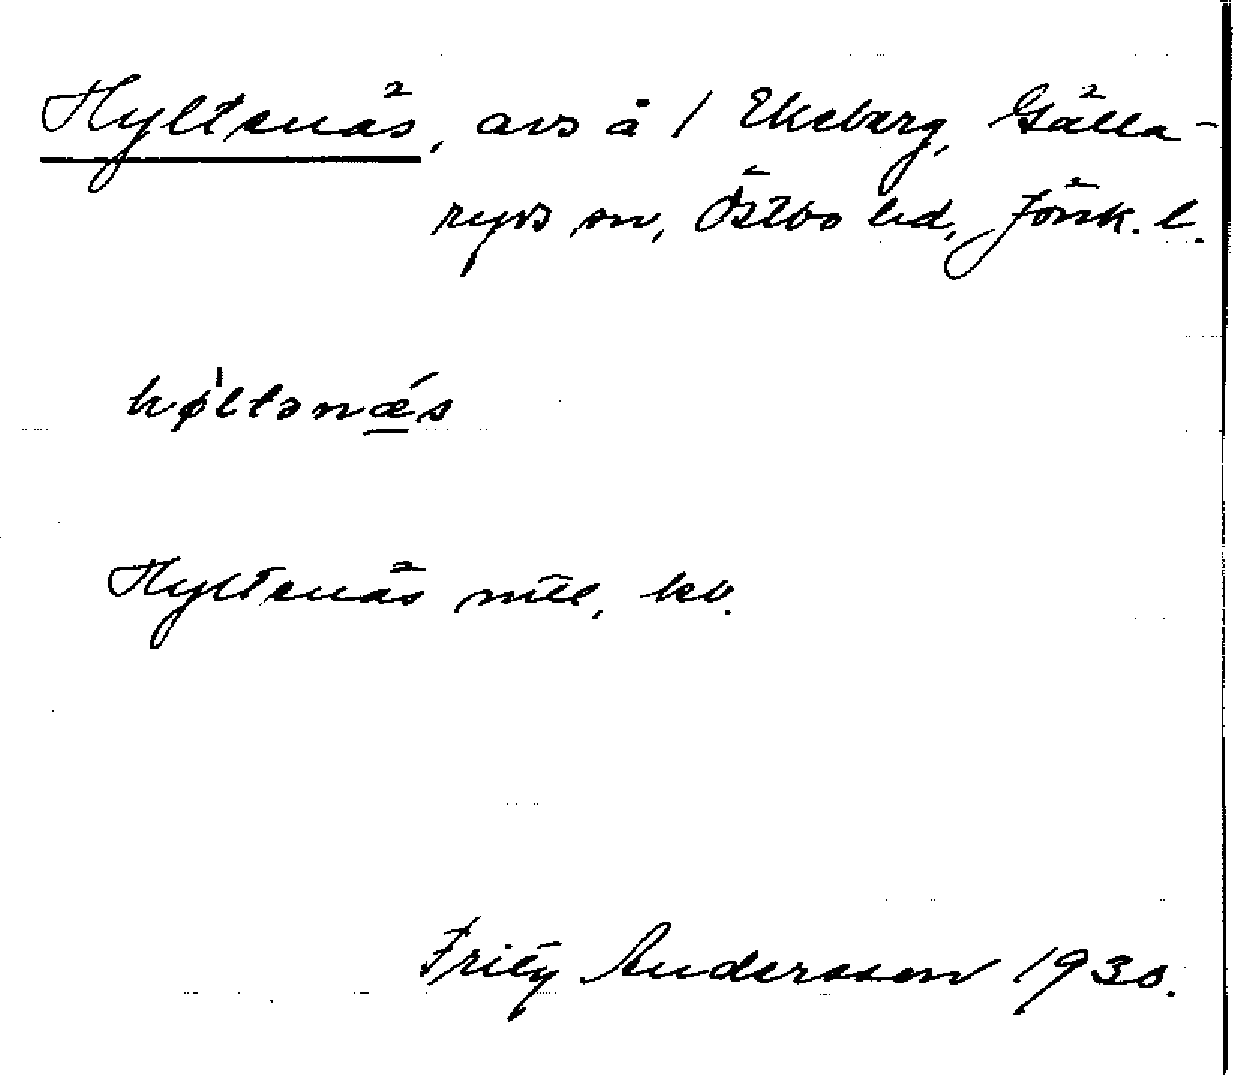 Hyltenäs, avs å 1 Ekeberg, Gälla-
ryds sn, Östbo hd, Jönk. l.
hø̀ltənǽs
Hyltenäs mtl, kv.
Frity Andersson 1930.